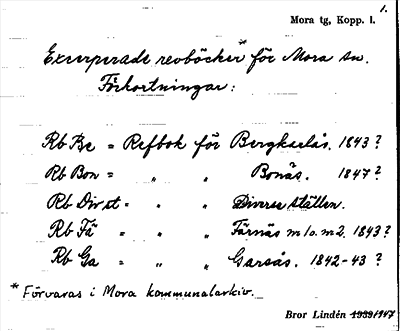 1.
Mora tg, Kopp. l.
Excerperade revböcker* för Mora sn.
Förkortningar:
Rb Be = Refbok för Bergkarlås. 1843?
Rb Bon = „ „ Bonäs. 1847?
Rb Div st = „ „ Diverse ställen.
Rb Fä = „ „ Färnäs m 1 o. m 2. 1843?
Rb Ga = „ „ Garsås. 1842-43?
* Förvaras i Mora kommunalarkiv.
Bror Lindén 1939/1947